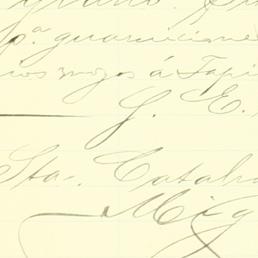 pª guarnicione
rios mozos á Tapi
G. E.
Sta. Catal
Mig